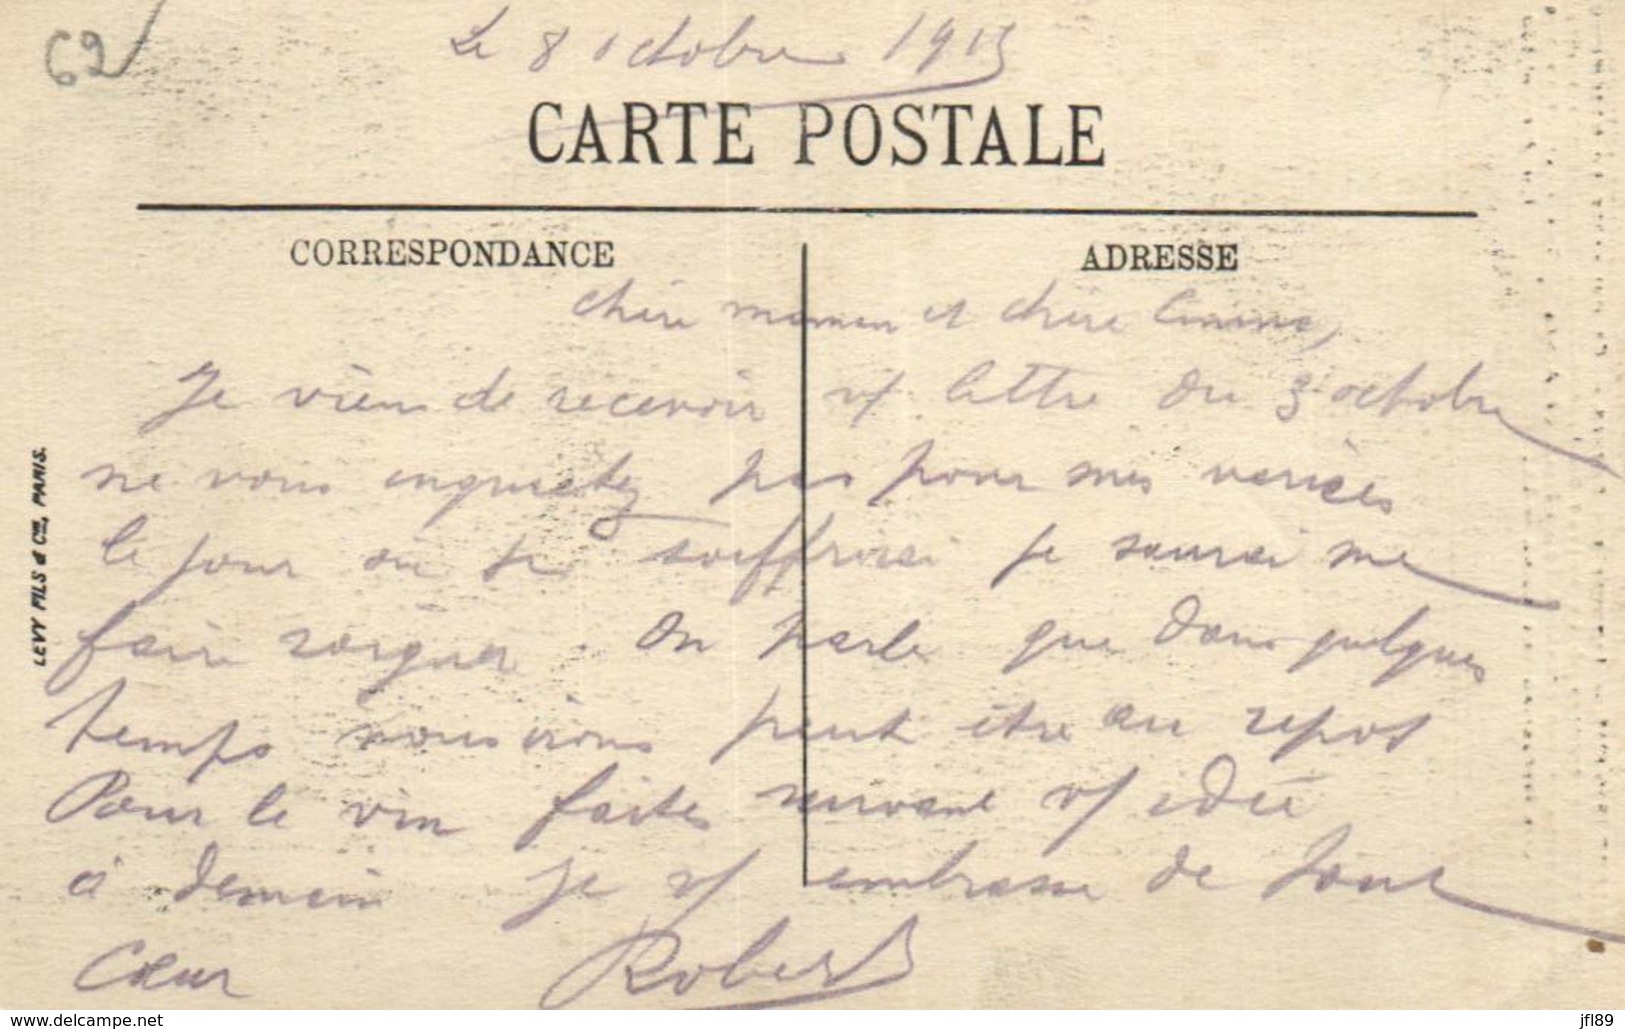 62
Le 8 octobre 1915
CARTE POSTALE
CORRESPONDANCE
ADRESSE
chère maman et chère
Je viens de recevoir vf lettre du 3 octobre
ne vous inquietez pas pour mes varices
le jour où je souffrirai je saurai me
faire soigner. On parle que dans quelques
temps nous irons peut être au repos
Pour le vin faites suivant vf idée
à demain je vf embrasse de tout
Cœur Robert
LEVY FILS & Cie, PARIS.
www.delcampe.net
jfl89